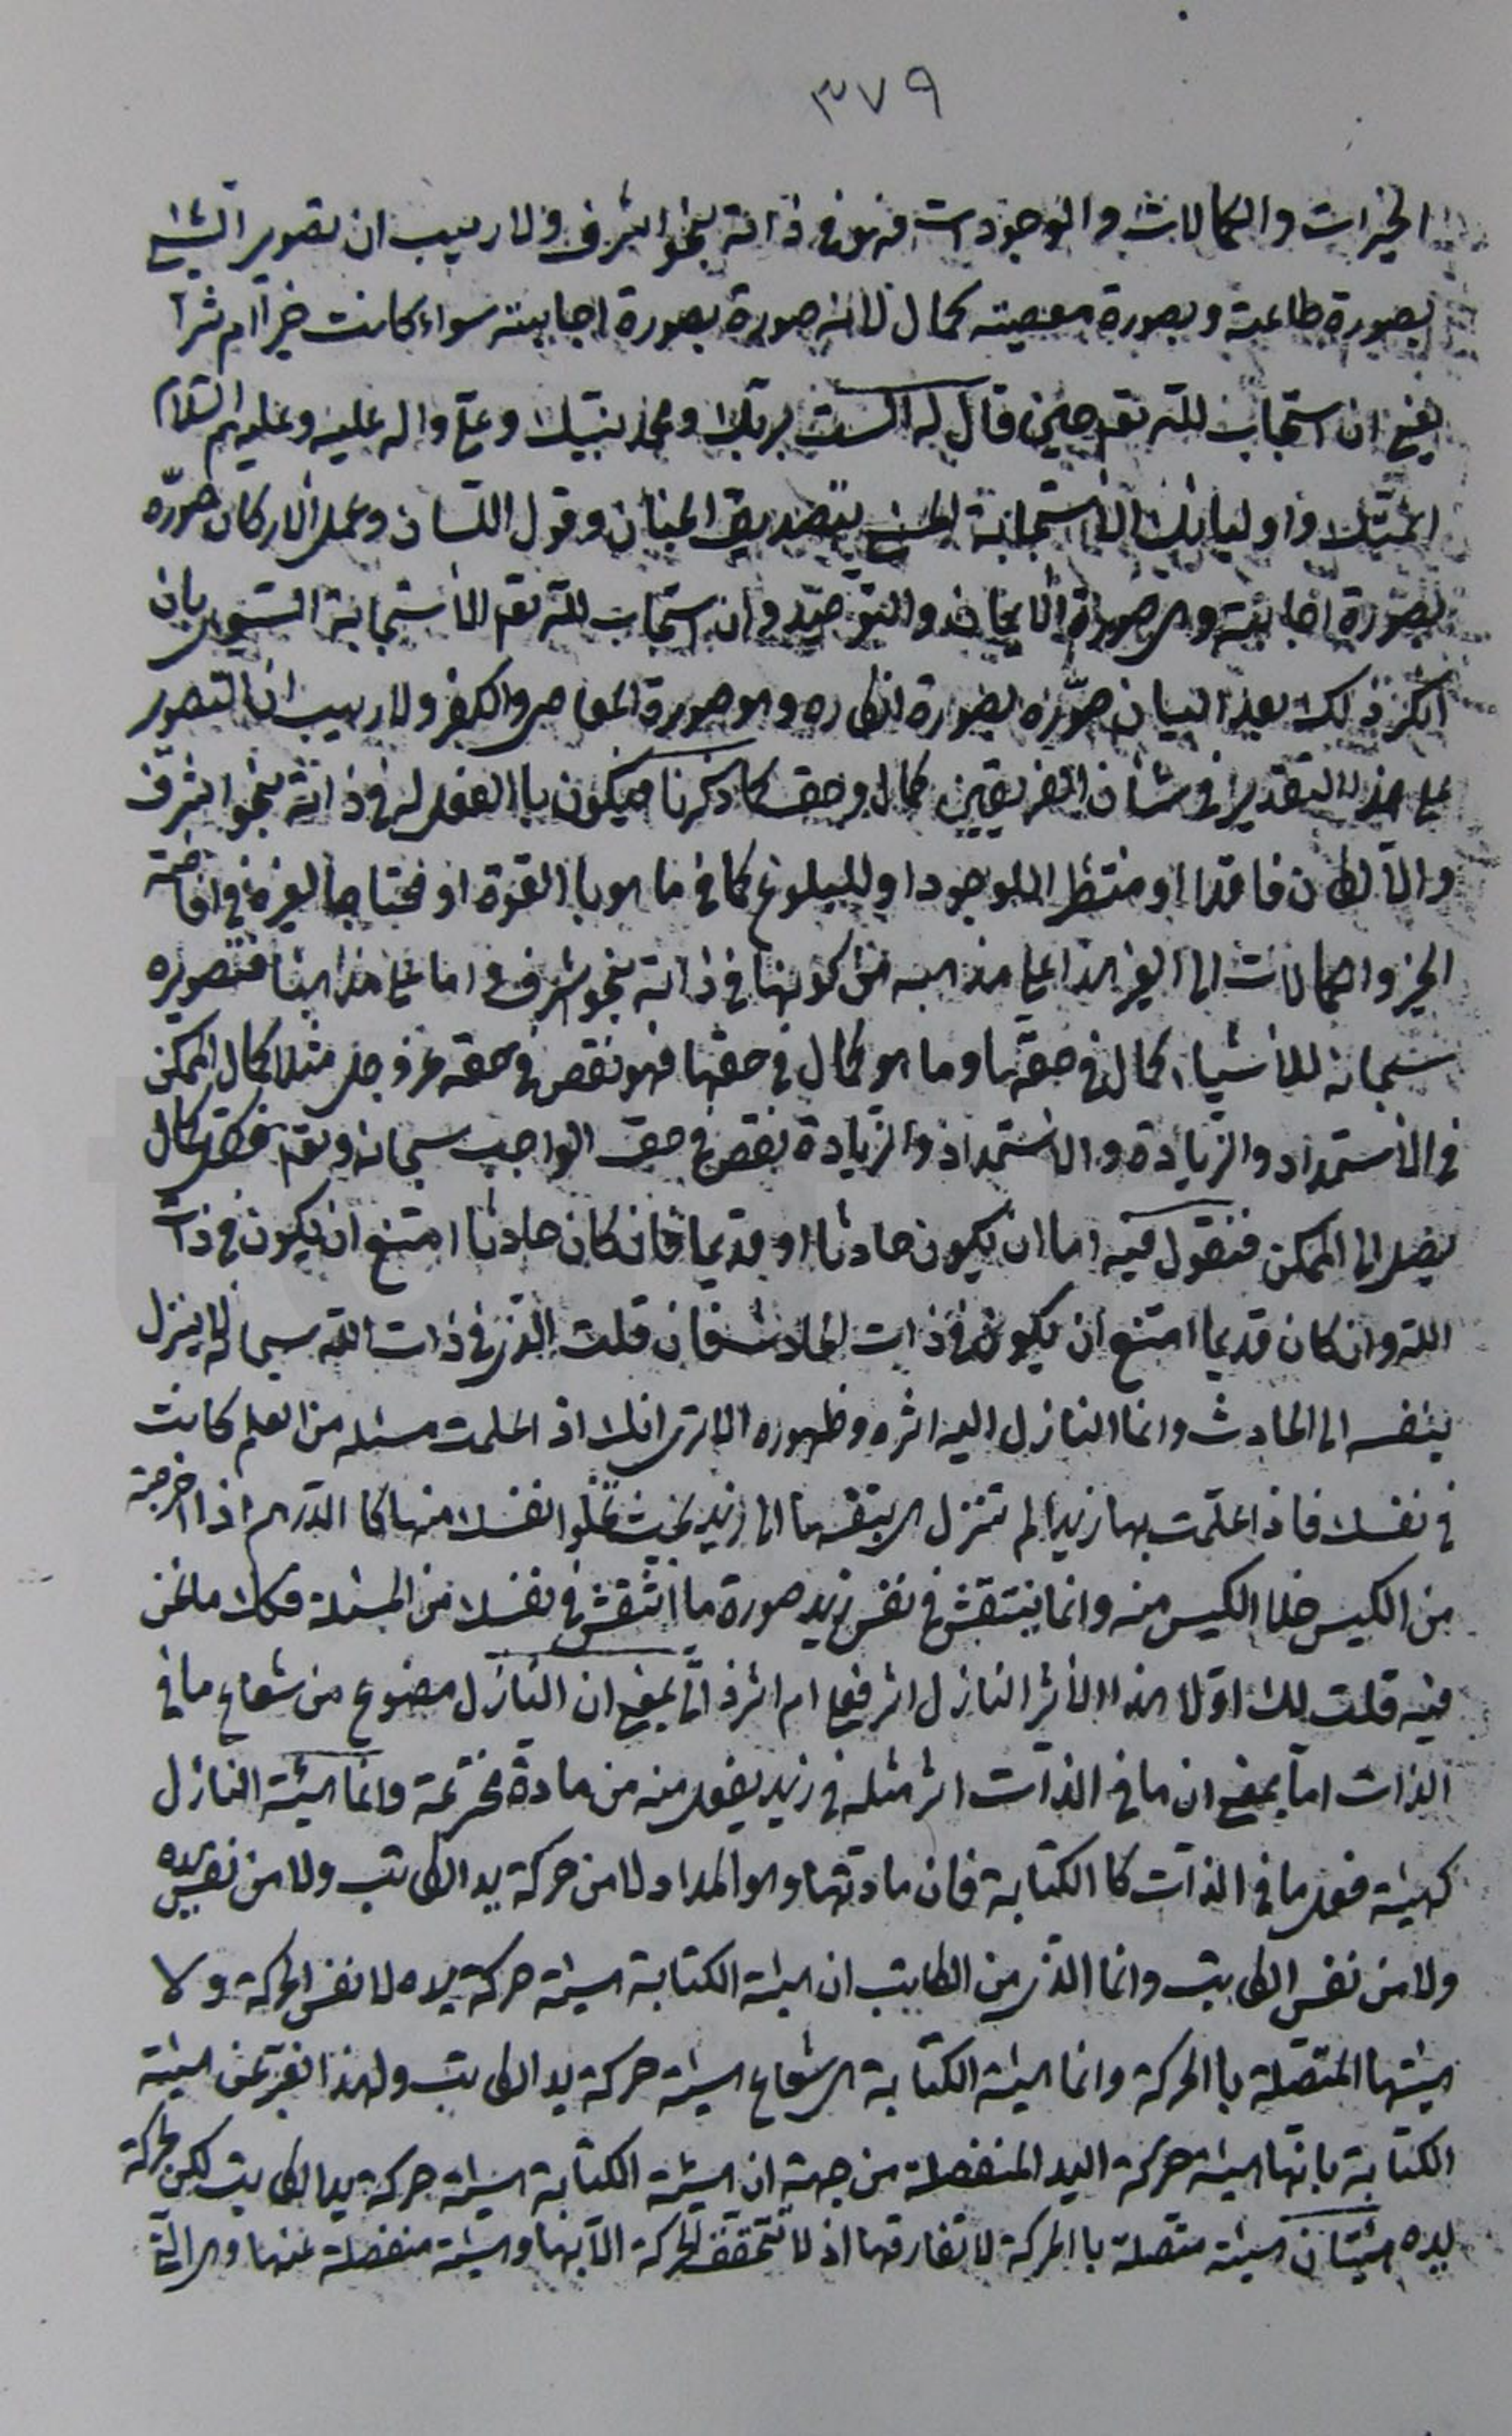 ٣٧٩
الخيرات والكمالات والوجودات فهو في ذاته بنحو اشرف ولا ريب ان تصوير الشيء
بصورة طاعته وبصورة معصيته كمال لانه صورة بصورة اجابته سواء كانت خيراً ام شراً
يعني ان استجاب للّه تعم حين قال له الست بربك ومحمد نبيّك وعلي واله عليه وعليهم السّلام
ائمّتك واوليائك الاستجابة الحسنى بتصديق الجنان وقول اللسان وعمل الاركان صوّره
بصورة اجابته وهى صورة الايمان والتوحيد وان استجاب للّه تعم الاستجابة السّوءى بان
انكر ذلك بعد البيان صوّره بصورة انكاره وهو صورة المعاصى والكفر ولا ريب ان التصوير
على هذا التقدير في شأن الفريقين كمال وحق كما ذكرنا فيكون با الفعل له في ذاته بنحو اشرف
والّا لكان فاقداً او منتظراً للوجود او للبلوغ كما في ما هو با القوة او محتاجا لغيره في افاضة
الخير والكمالات الى الغير هذا على مذهبه من كونها في ذاته بنحو اشرف واما على مذهبنا فتصويره
سبحانه للاشياء كمال في حقها وما هو كمال في حقها فهو نقص في حقه عز وجل مثلا كمال الممكن
في الاستمداد والزيادة والاستمداد والزيادة نقص في حق الواجب سبحانه وتعم فكل كمال
يصل الى الممكن فنقول فيه اما ان يكون حادثا او قديما فان كان حادثا امتنع ان يكون في ذات
اللّه وان كان قديما امتنع ان يكون في ذات الحادث فان قلت الذى في ذات اللّه سبحانه لا ينزل
بنفسه الى الحادث وانما النازل اليه اثره وظهوره الا ترى انك اذا علمت مسئلة من العلم كانت
في نفسك فاذا علّمت بها زيدا لم تنزل هى بنفسها الى زيد بحيث تخلوا نفسك منها كا الدّرهم اذا اخرجته
من الكيس خلا الكيس منه وانما ينتقش في نفس زيد صورة ما انتقش في نفسك من المسئلة فكذلك ما نحن
فيه قلت لك اوّلا هذا الاثر النازل اثر فعلى ام اثر ذاتى بمعنى ان النازل مصنوع من شعاع ما في
الذات اما بمعنى ان ما في الذات اثر مثله في زيد بفعل منه من مادة مخترعة وانما هيئة النازل
كهيئة فعل ما في الذات كا الكتابة فان مادتها وهو المداد لا من حركة يد الكاتب ولا من نفس يده
ولا من نفس الكاتب وانما الذى من الكاتب ان هيئة الكتابة هيئة حركة يده لا نفس الحركة ولا
هيئتها المتصلة با الحركة وانما هيئة الكتابة هى شعاع هيئة حركة يد الكاتب ولهذا نعبر عن هيئة
الكتابة بانّها هيئة حركة اليد المنفصلة من جهة ان هيئة الكتابة هيئة حركة يد الكاتب لكن لحركة
يده هيئتان هيئة متصلة با الحركة لا تفارقها اذ لا تتحقق الحركة الّا بها وهيئة منفصلة عنها وهى الّتى